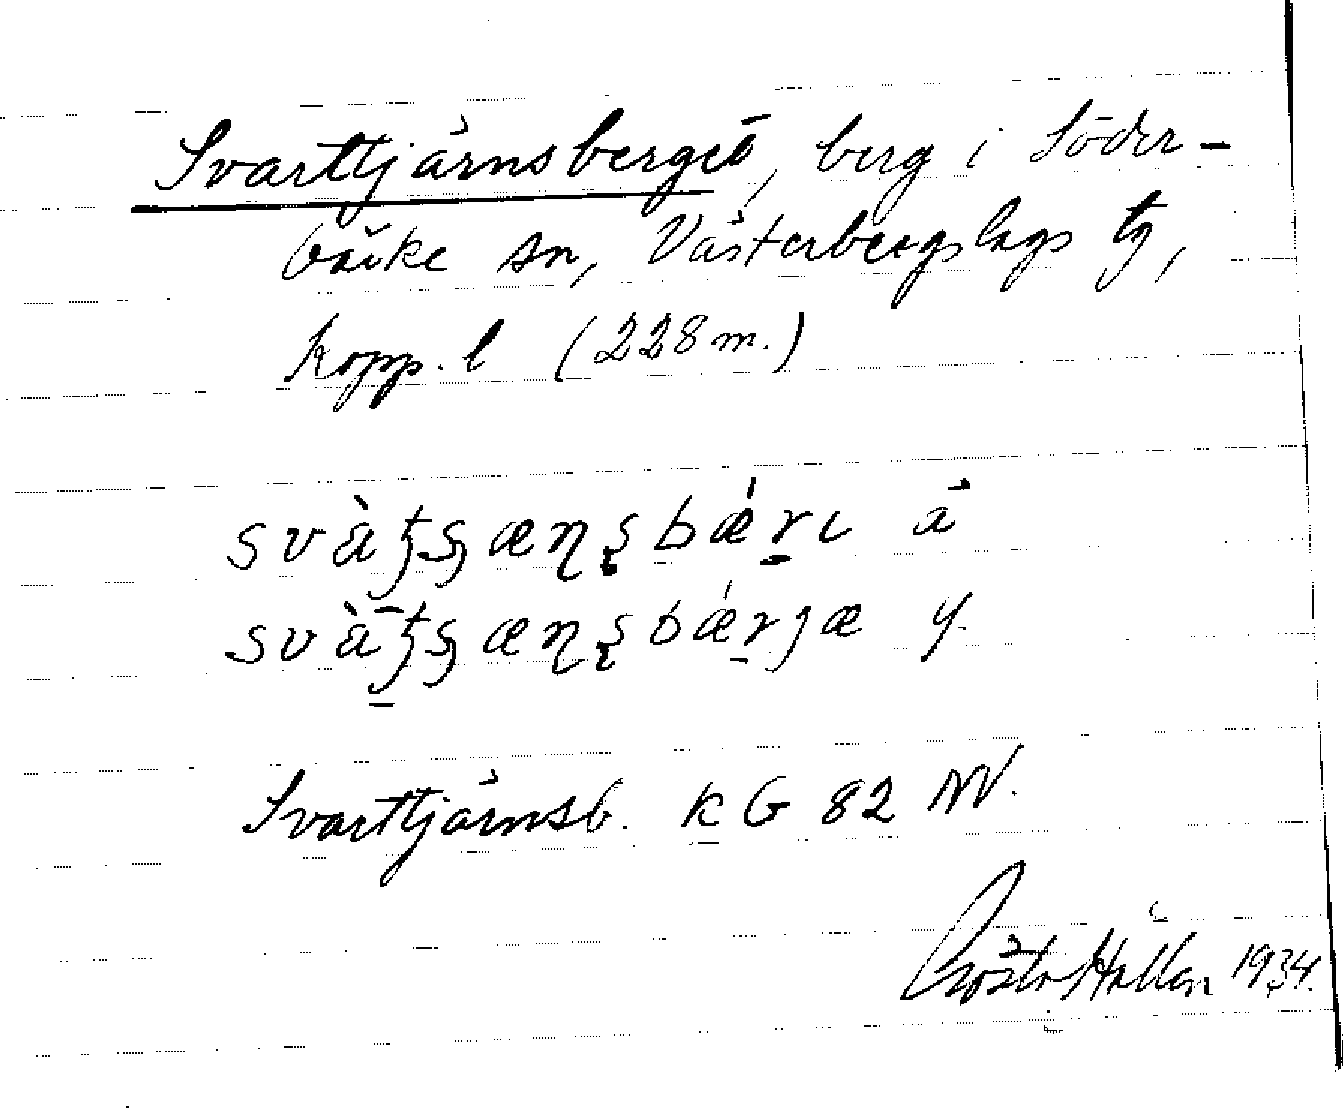 Svarttjärnsberget, berg i Söder-
bärke sn, Västerbergslags tg,
Kopp. l (228 m.)
svàʈʂæɳʂbǽrɩ ā
svà̄ʈʂæɳʂbǽrjæ y.
Svarttjärnsb. KG 82 NV.
Gösta Hallén 1934.